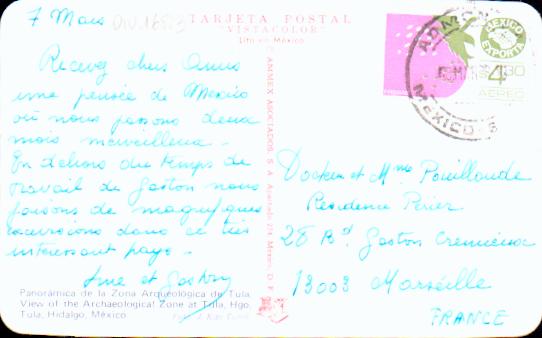 7 Mars
TARJETA POSTAL
"VISTACOLOR"
Lito en México
Recevez chers Amis
une pensée de Mexico
où nous passons deux
mois merveilleux.
En dehors du temps de
travail de Gaston nous
faisons de magnifiques
excursions dans ce très
intéressant pays.
Anne et Gaston
Panorámica de la Zona Arqueológica de Tula
View of the Archaeological Zone at Tula, Hgo.
Tula, Hidalgo, México
AMMEX ASOCIADOS, S. A. Apartado México, D. F.
MEXICO
EXPORTA
AEREO
MEXICO
Docteur et Mme Pouillaude
Résidence Périer
28 Bd Gaston Crémieux
13008 Marseille
FRANCE